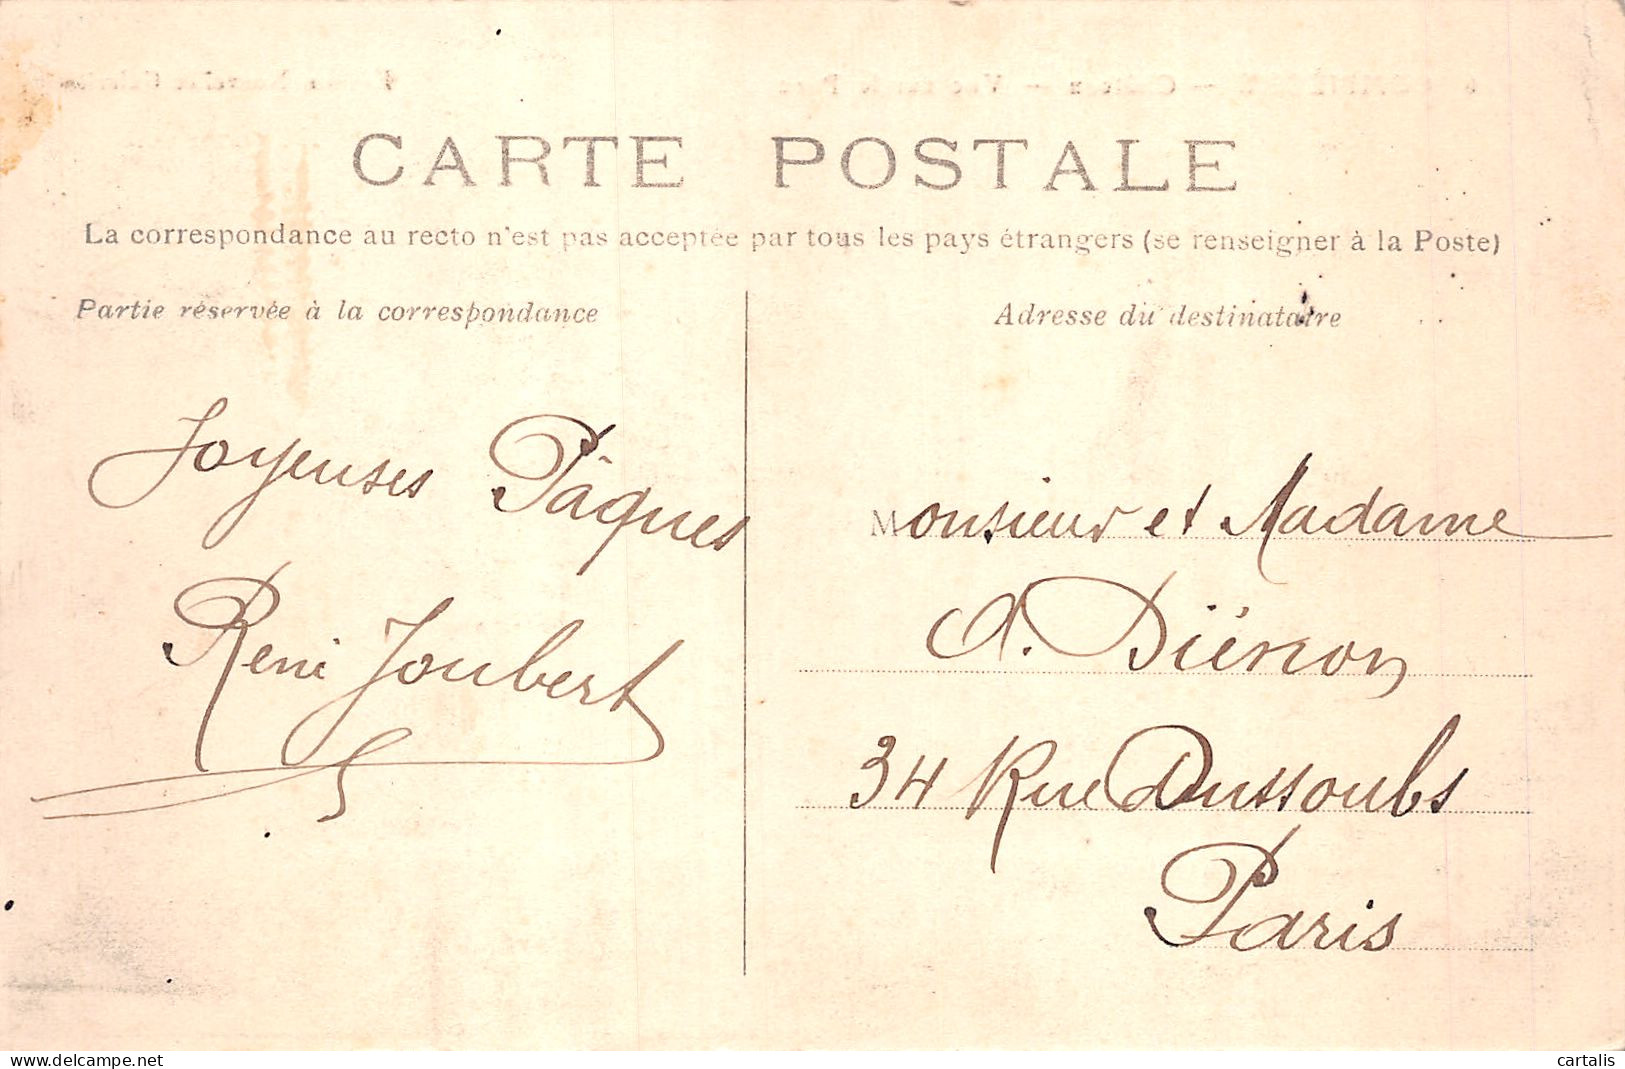 CARTE POSTALE
La correspondance au recto n'est pas acceptée par tous les pays étrangers (se renseigner à la Poste)
Partie réservée à la correspondance
Adresse du destinataire
Joyeuses Pâques
René Joubert
Monsieur et Madame
A. Diénon
34 Rue Dussoubs
Paris
delcampe.net
cartalis